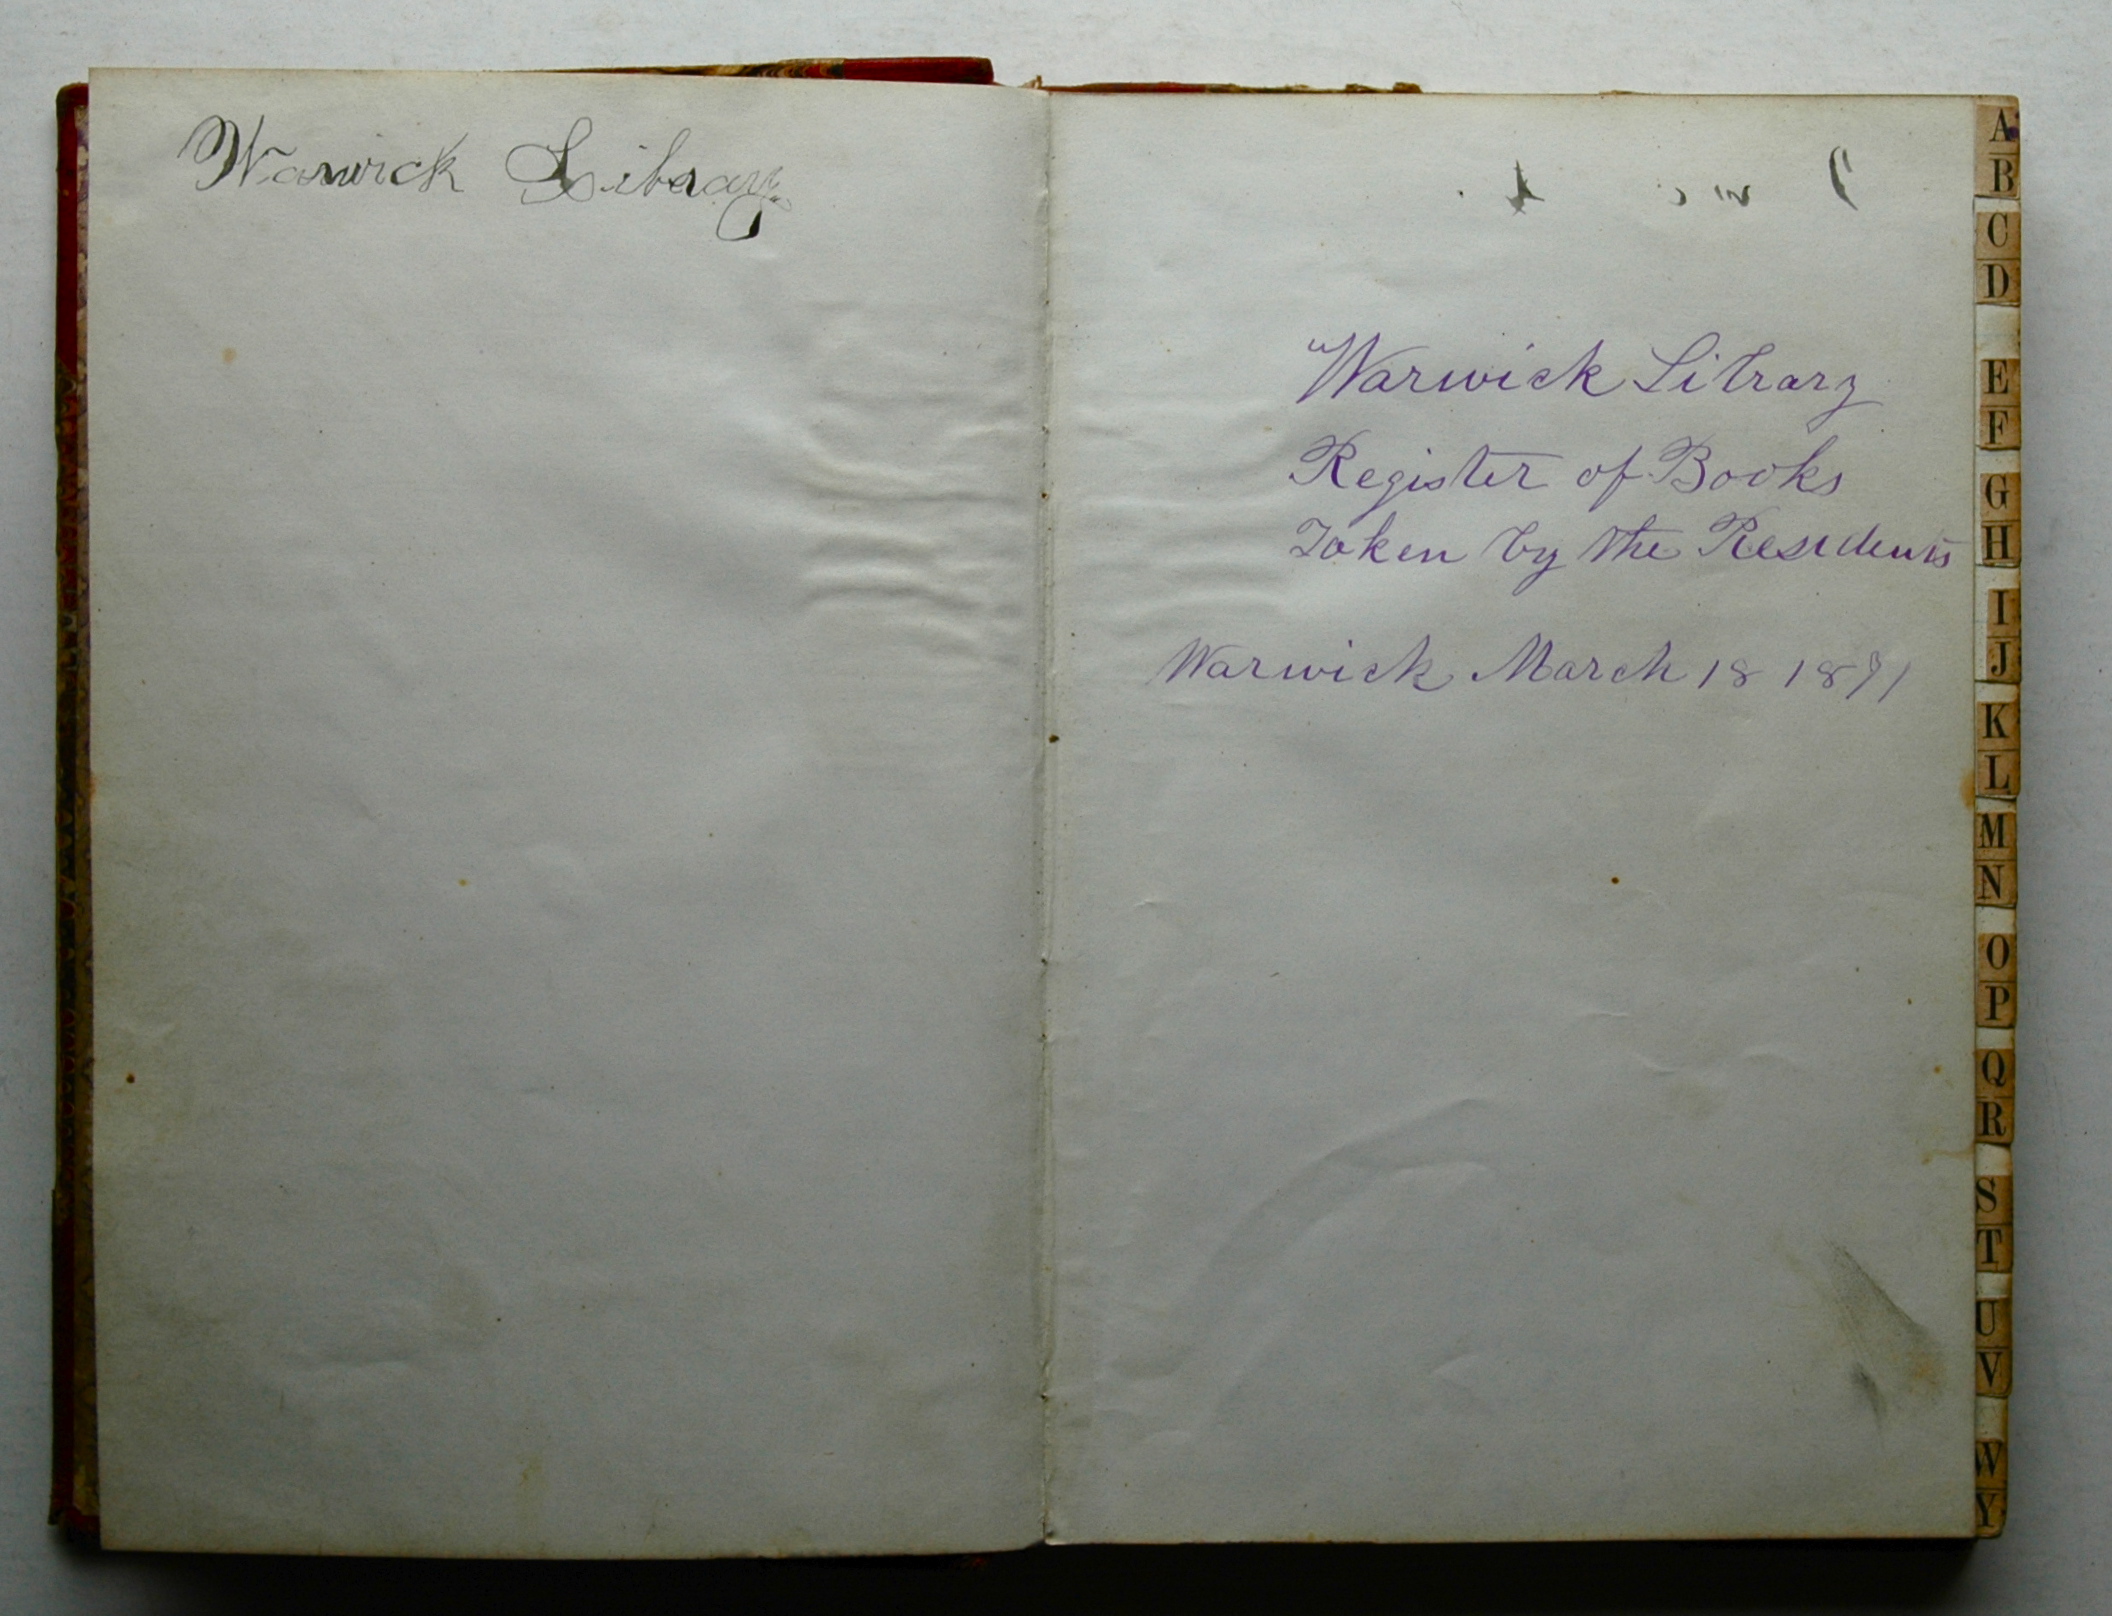 Warwick Library
Warwick Library
Register of Books
Taken by the Residents
Warwick March 18 1891
A
B
C
D
E
F
G
H
I
J
K
L
M
N
O
P
Q
R
S
T
U
V
W
Y